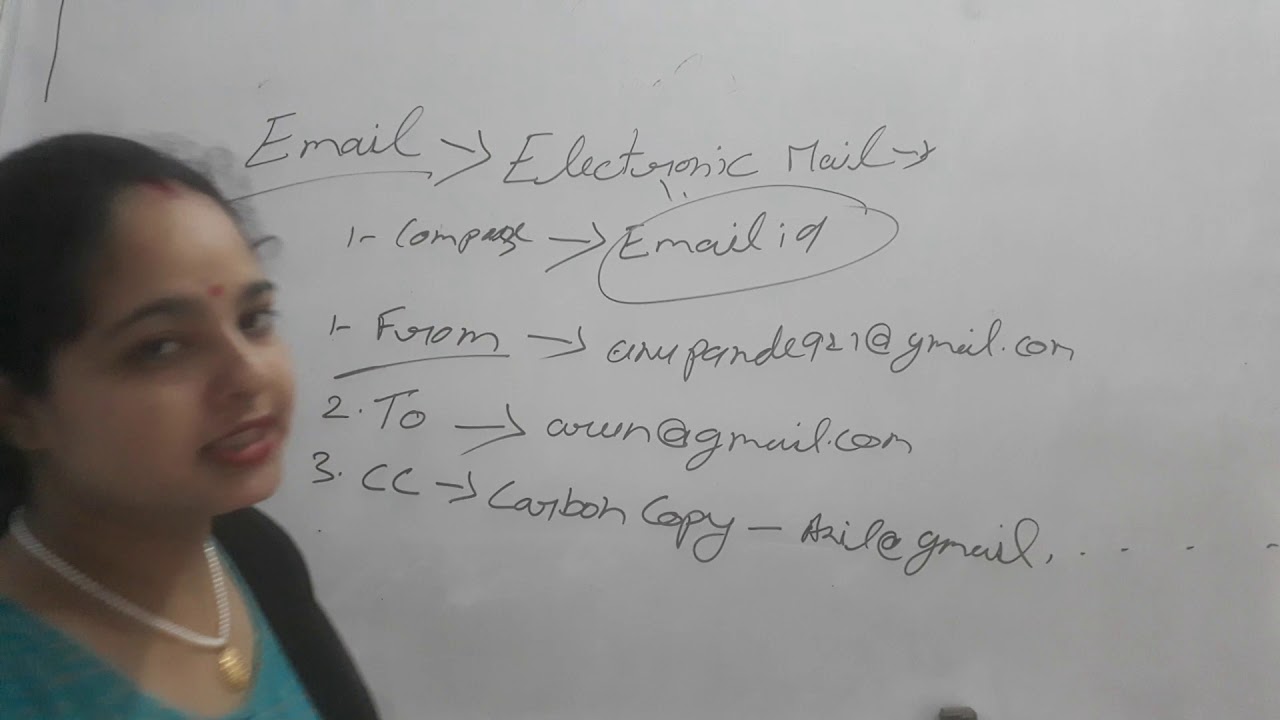 Email → Electronic Mail →
1- Compose → Email id
1- From → anupande921@gmail.com
2. To → arun@gmail.com
3. CC → Carbon Copy - Akil@gmail. . . . .